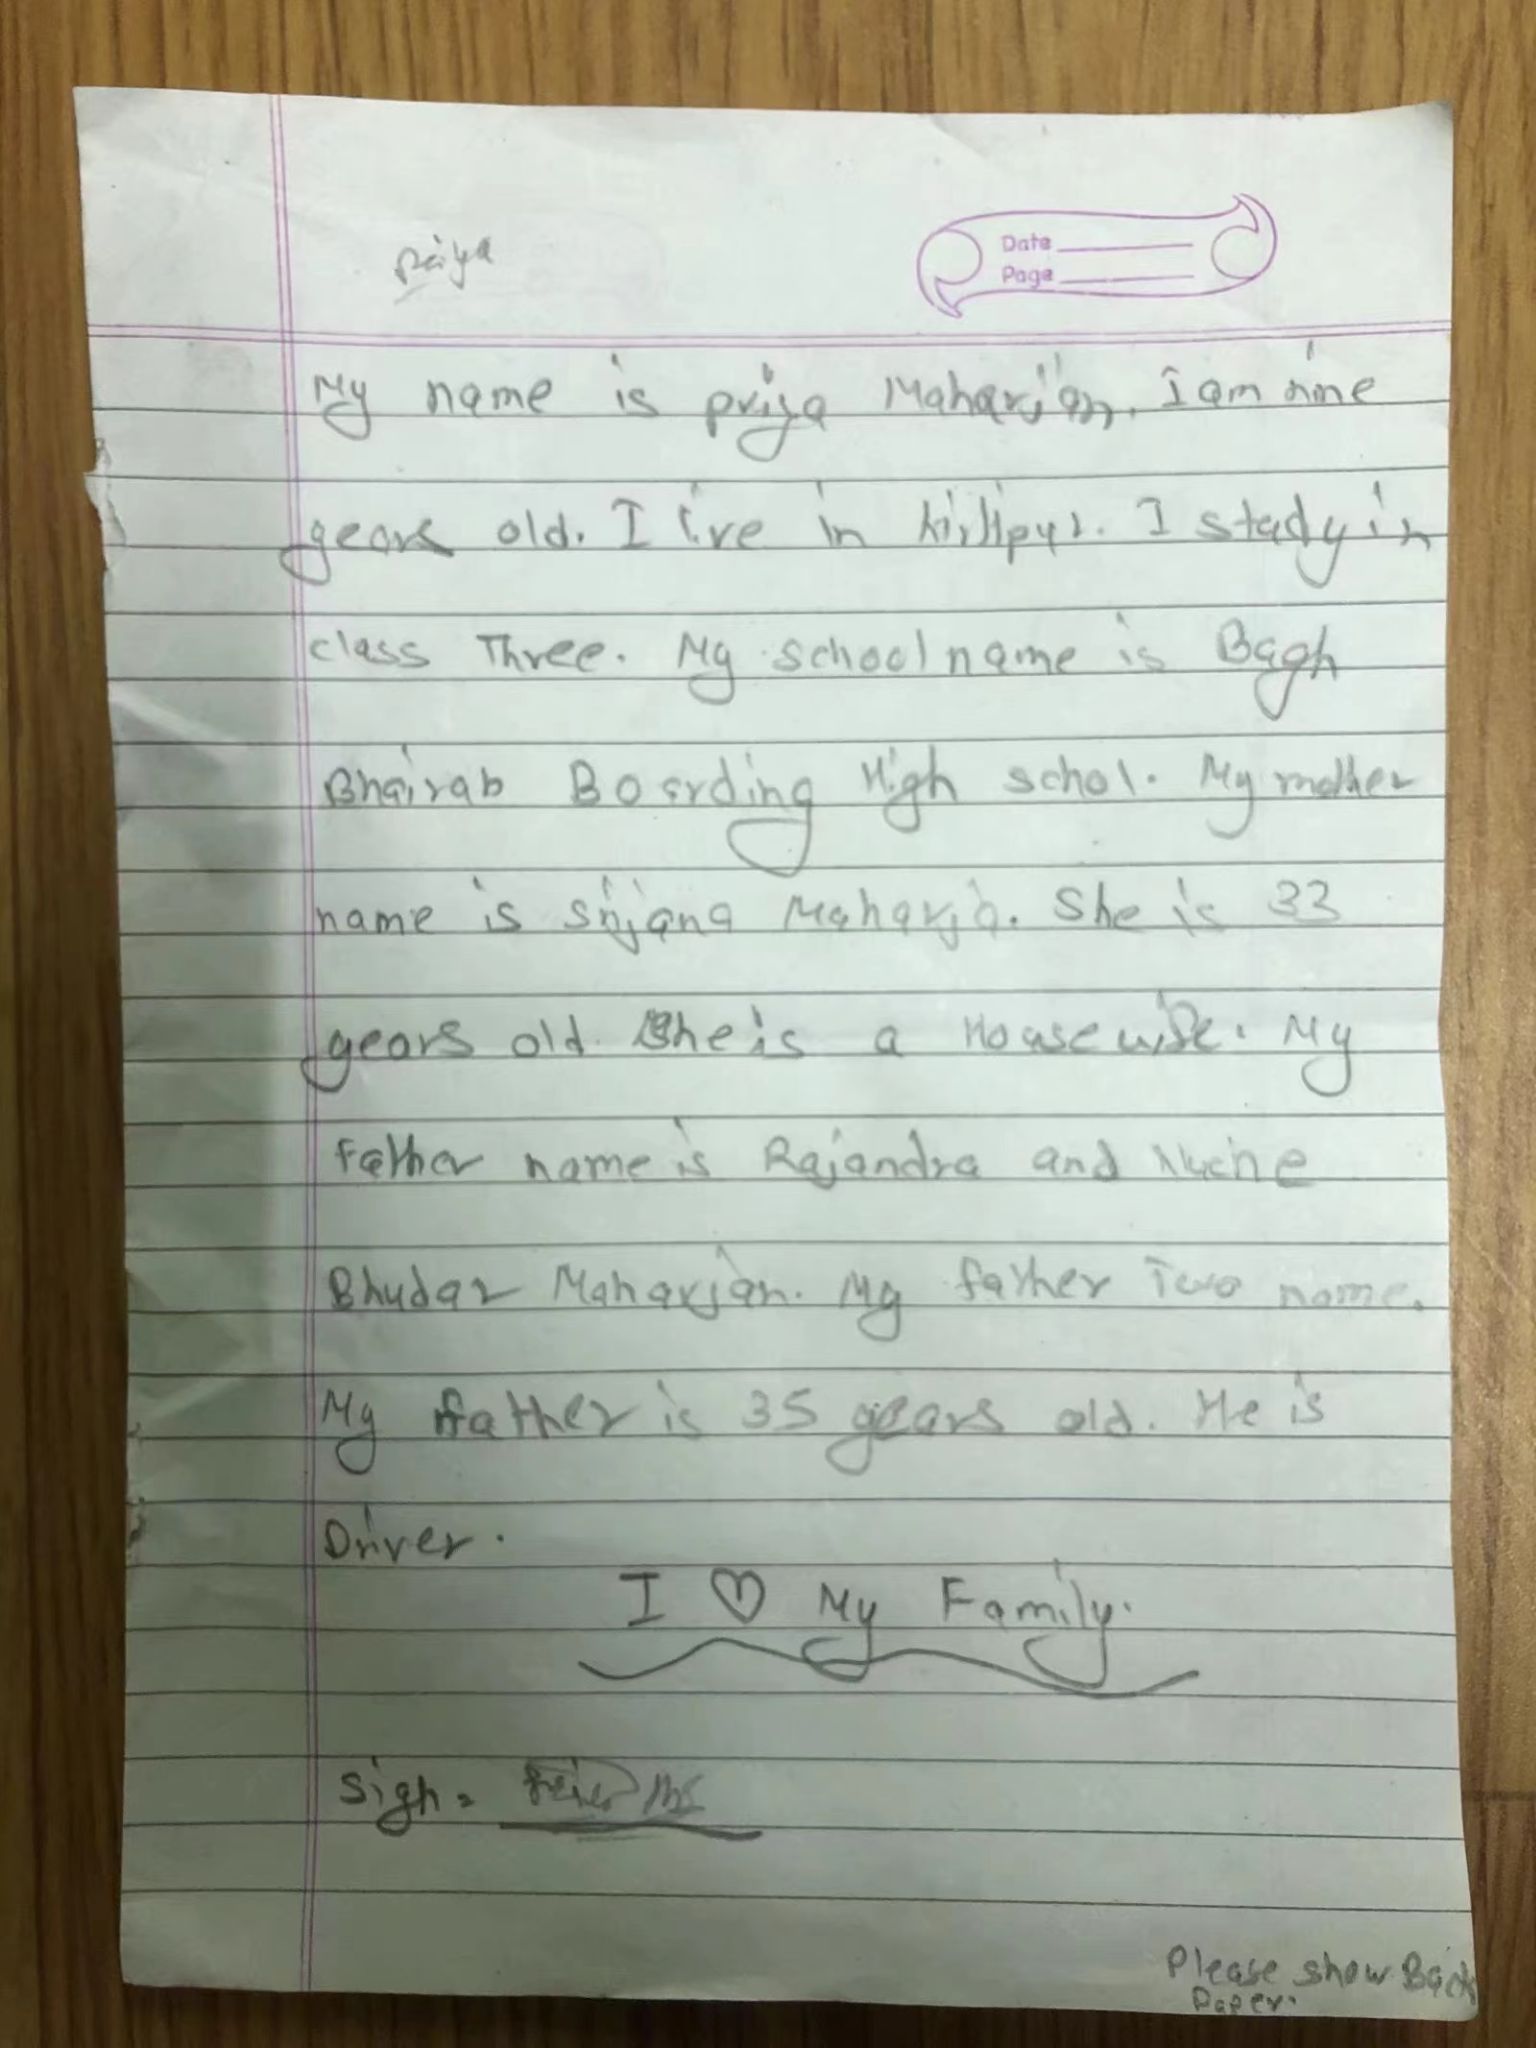 Priya
Date
Page
My name is priya Maharjan. I am nine
years old. I live in kirtipur. I study in
class Three. My school name is Bagh
Bhairab Boarding High schol. My mother
name is Srijana Maharja. She is 33
years old. She is a Housewife. My
father name is Rajandra and Nuche
Bhudar Maharjan. My father Two name.
My father is 35 years old. He is
Driver.
I ♡ My Family.
Sigh =
Please show Back
Paper.